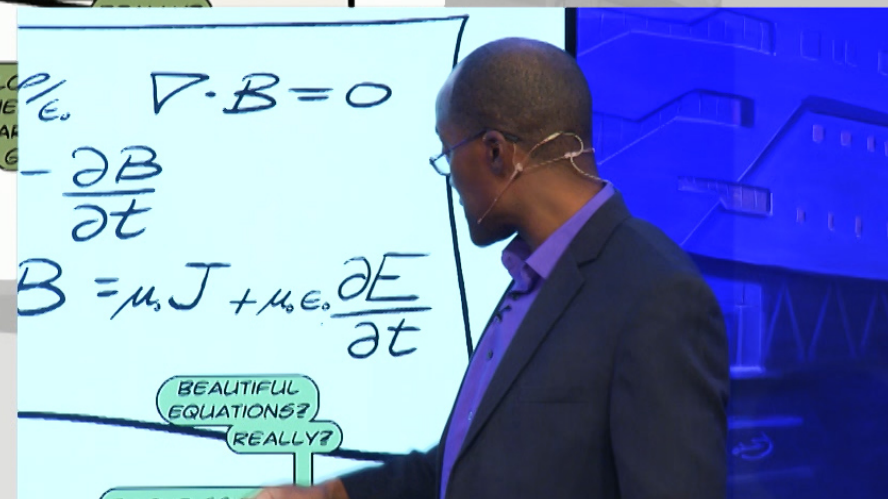 ρ/ε₀ ∇·B=0
- ∂B/∂t
B =μ₀J+μ₀ε₀ ∂E/∂t
BEAUTIFUL
EQUATIONS?
REALLY?